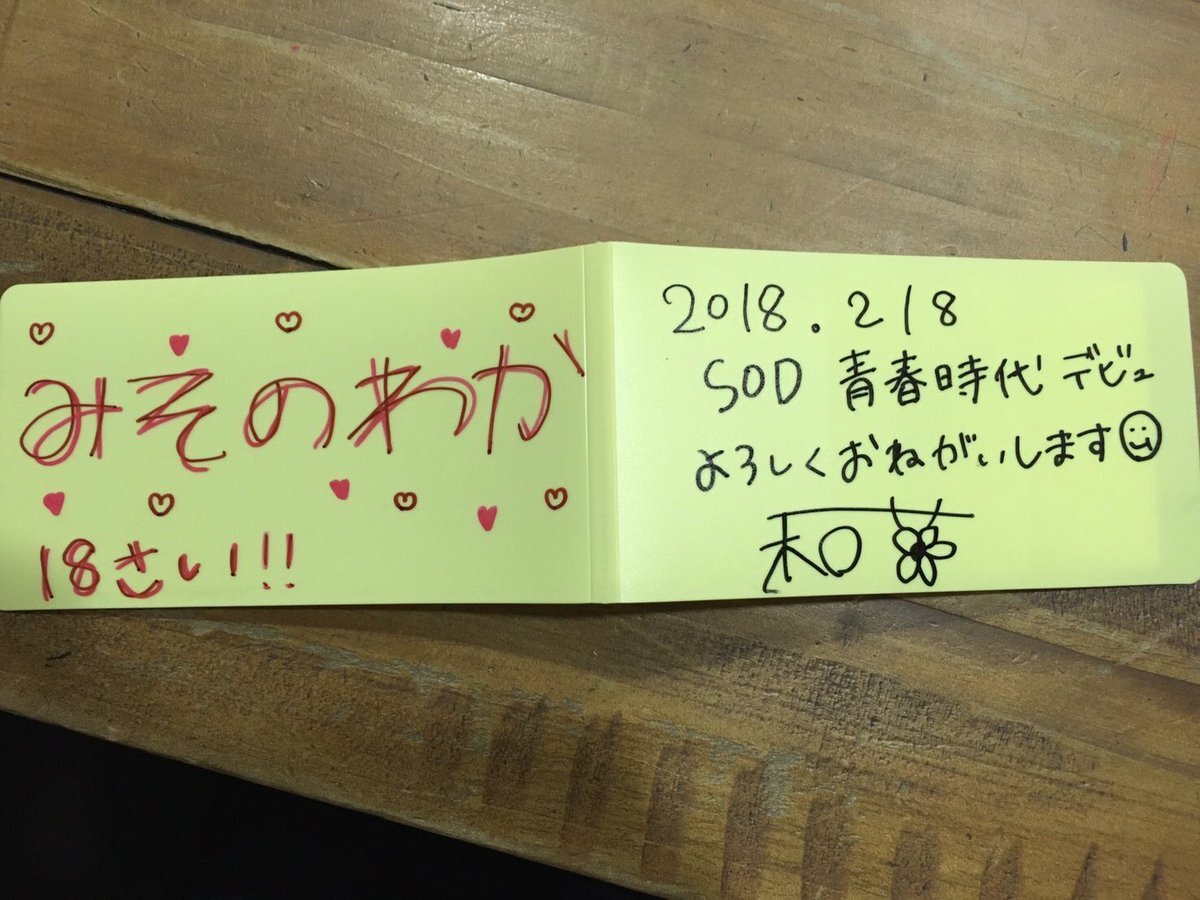 みそのわか
18さい!!!
2018.218
SOD 青春時代 デビュー
よろしくおねがいします
和花